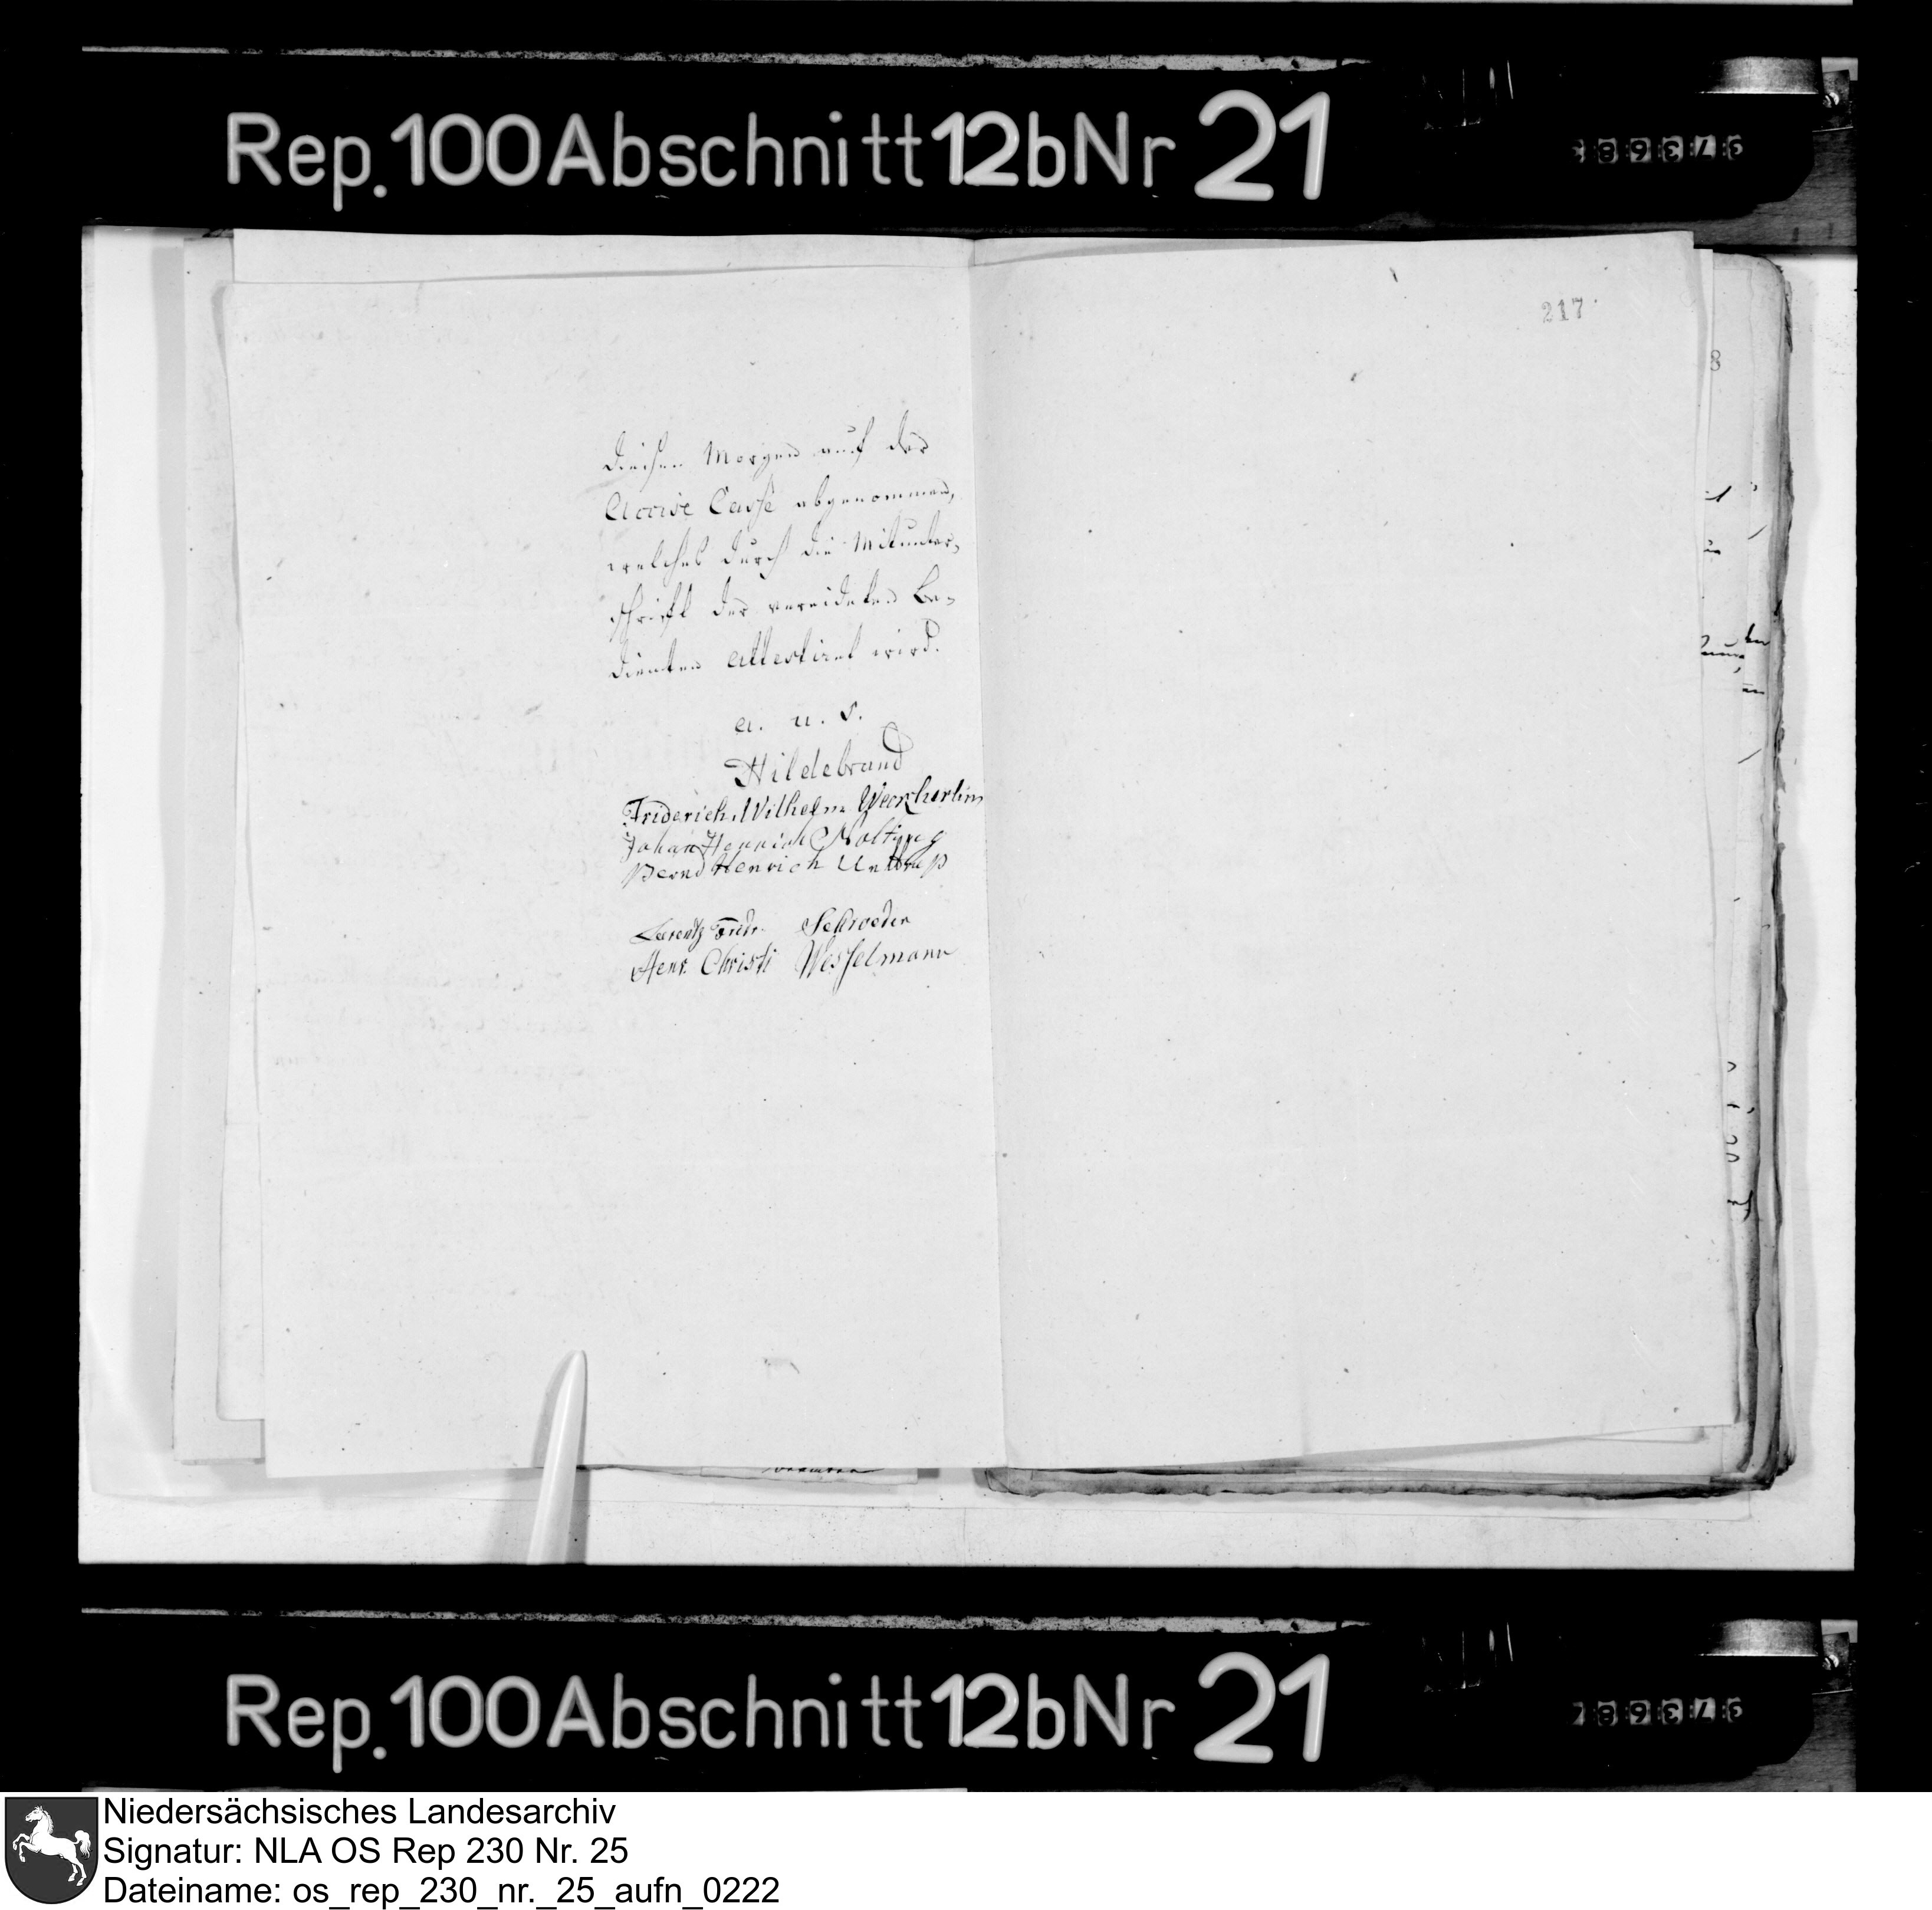 Rep. 100 Abschnitt 12b Nr 21
217.
8
diesen Morgen auf der
Accise Casse abgenommen,
welches durch die Mitunter-
schrifft der vereideten Be-
dienten attestiret wird.
a. u. s.
Hildebrand
Friderich Wilhelm Weckherlin
Johan Henrich Noltijng
Bernd Henrich Unttrup
Lorentz Fridr. Schroeder
Henr. Christi Wesselmann
Rep. 100 Abschnitt 12b Nr 21
Niedersächsisches Landesarchiv
Signatur: NLA OS Rep 230 Nr. 25
Dateiname: os_rep_230_nr._25_aufn_0222